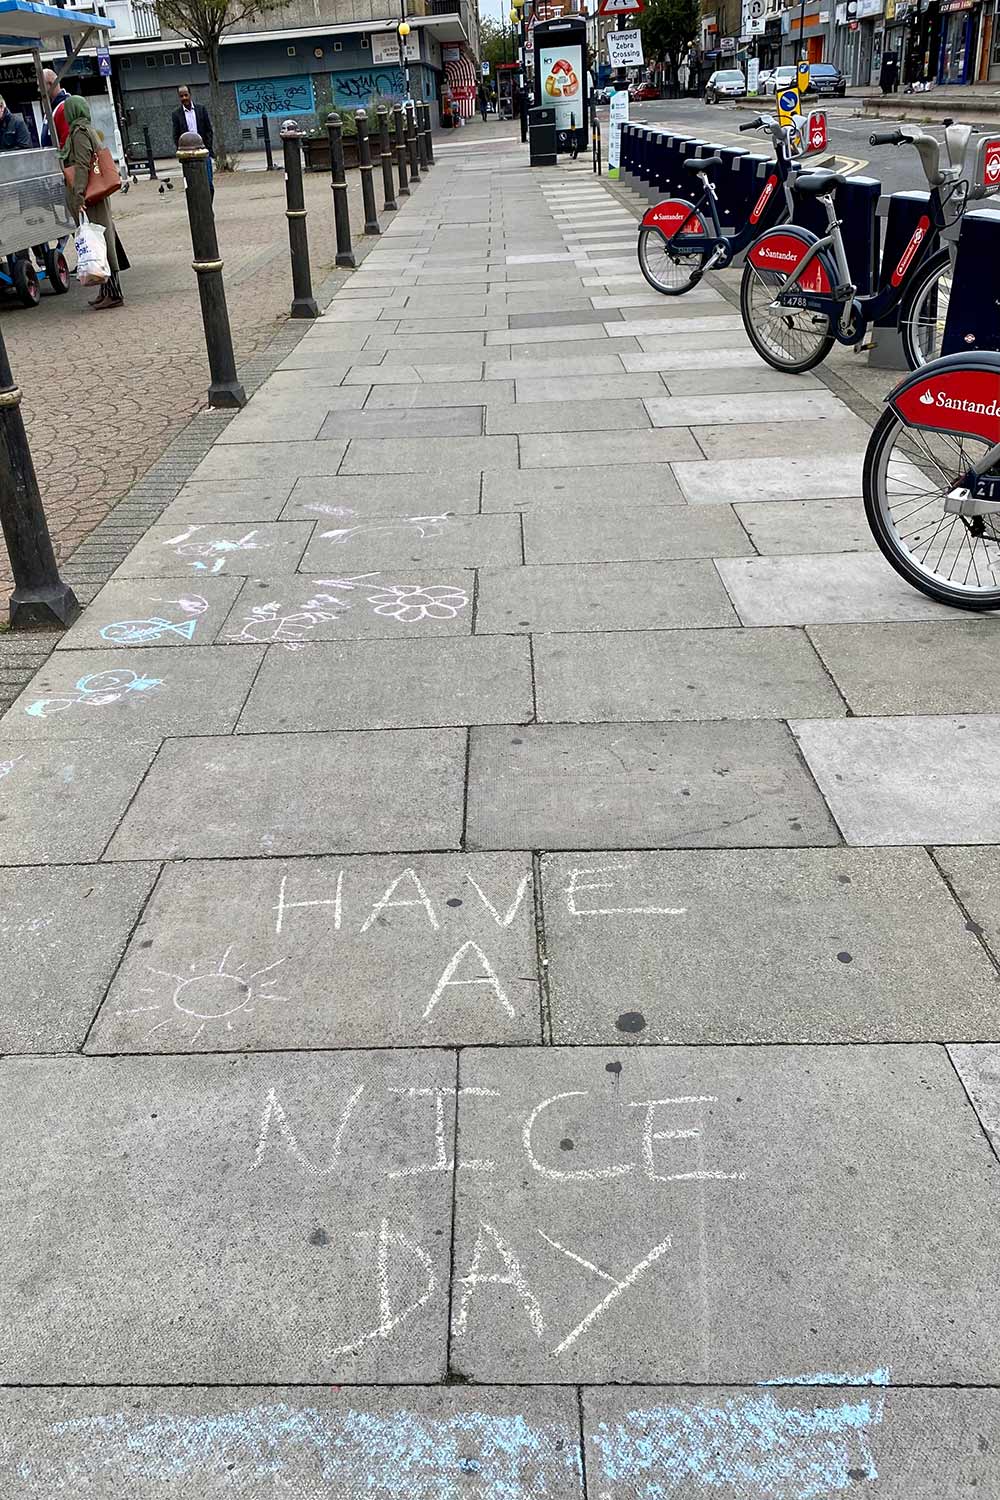 Humped
Zebra
Crossing
Santander
Santander
4788
Santande
21
HAVE
A
NICE
DAY